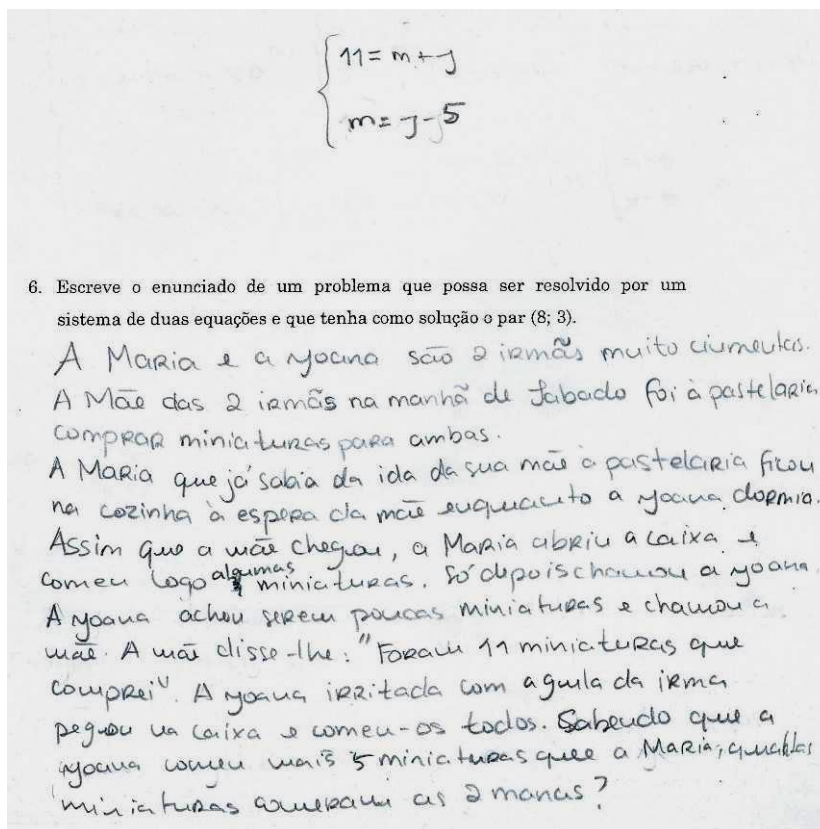 11 = m + j
m = j - 5
6. Escreve o enunciado de um problema que possa ser resolvido por um
sistema de duas equações e que tenha como solução o par (8; 3).
A Maria e a Yoana são 2 irmãs muito ciumentas.
A Mãe das 2 irmãs na manhã de Sabado foi à pastelaria
comprar miniaturas para ambas.
A Maria que já sabia da ida da sua mãe à pastelaria ficou
na cozinha à espera da mãe enquanto a Yoana dormia.
Assim que a mãe chegou, a Maria abriu a caixa e
comeu logo algumas miniaturas. Só depois chamou a Yoana.
A Yoana achou serem poucas miniaturas e chamou a
mãe. A mãe disse-lhe: "Foram 11 miniaturas que
comprei". A Yoana irritada com a gula da irma
pegou na caixa e comeu-os todos. Sabendo que a
Yoana comeu mais 5 miniaturas que a Maria, quantas
miniaturas comeram as 2 manas?